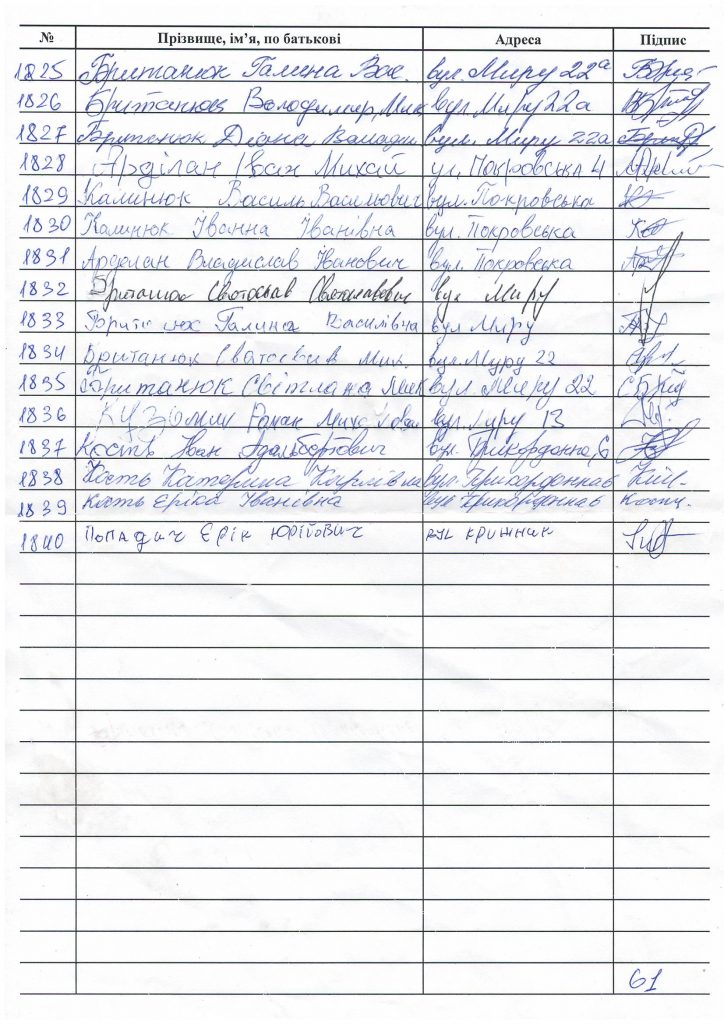 № Прізвище, ім'я, по батькові Адреса Підпис
1825 Британюк Галина Вас. вул. Миру 22а
1826 Британюк Володимир Мих вул Миру 22а
1827 Британюк Діана Володим вул. Миру 22а
1828 Арділан Іван Михай ул. Покровська 4
1829 Калинюк Василь Васильович вул. Покровська
1830 Калинюк Іванна Іванівна вул. Покровська
1831 Арделан Владислав Іванович вул. Покровська
1832 Британюк Святослав Святославович вул Миру
1833 Галина Василівна вул Миру
1834 Британюк Мих. вул. Миру 22
1835 Британюк Світлана Мих вул Миру 22
1836 Роман вул. 13
1837 Кость Іван Адальбертович вул. Прикордонна, 6
1838 Кость Катерина Карлівна вул. Прикордонна 6
1839 Кость Еріка Іванівна вул Прикордонна 6
1840 Попадич Єрік Юрійович
61